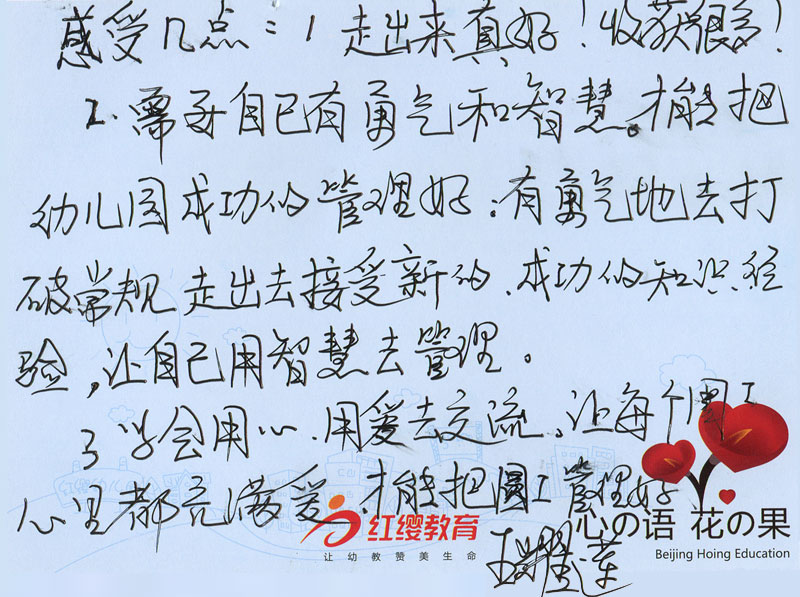 感受几点:1 走出来真好!收获很多!
2. 需要自己有勇气和智慧。才能把
幼儿园成功的管理好;有勇气地去打
破常规 走出去接受新的、成功的知识经
验,让自己用智慧去管理。
3 学会用心、用爱去交流,让每个园工
心里都充满爱,才能把园工管理好
红缨教育
让幼教赞美生命
心の语 花の果
Beijing Hoing Education